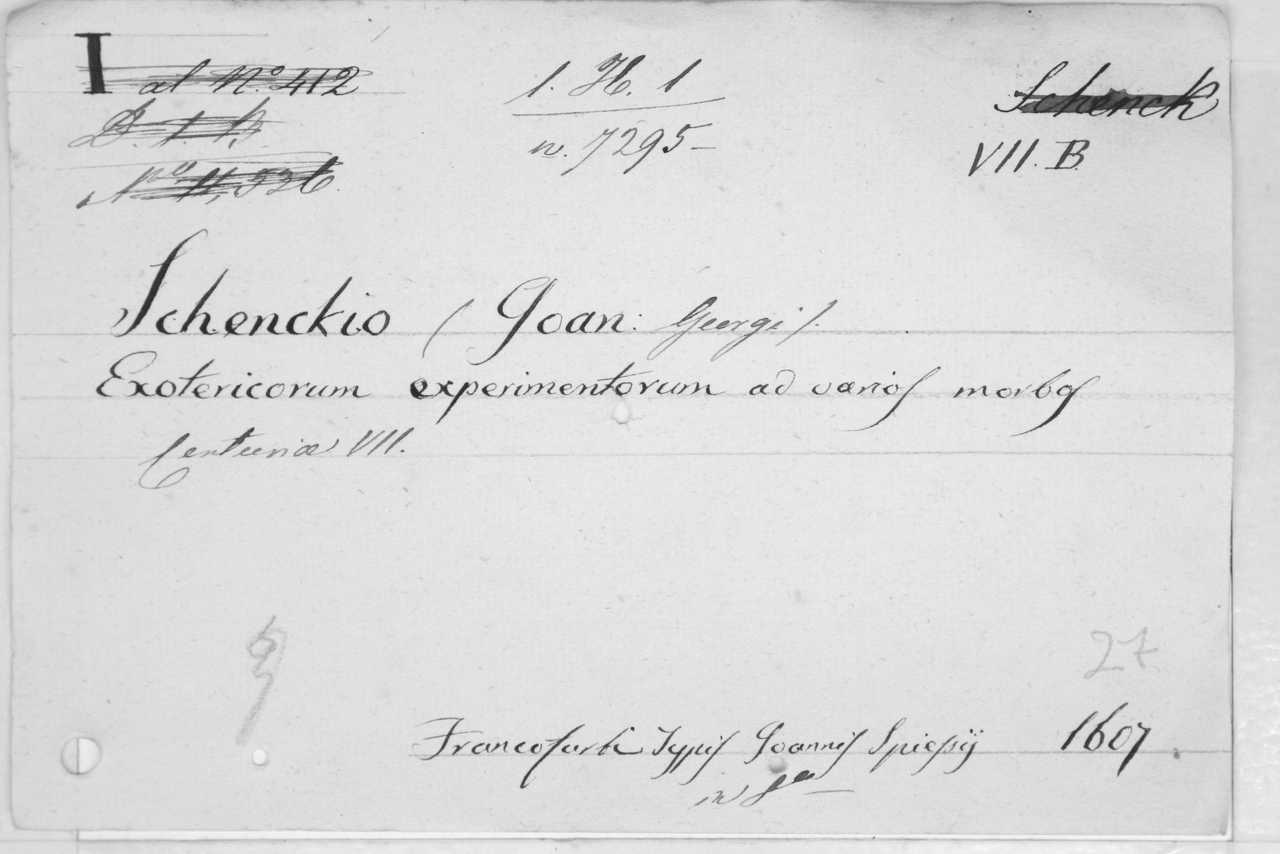 I al No 412
l. H. 1
Schenck
D. 1. h.
n. 7295
VII. B.
No 11,526
Schenckio (Joan: Georgi).
Exotericorum experimentorum ad varios morbos
Centuriæ VII.
27
Francofurti Typis Joannis Spiessij 1607
in 8o